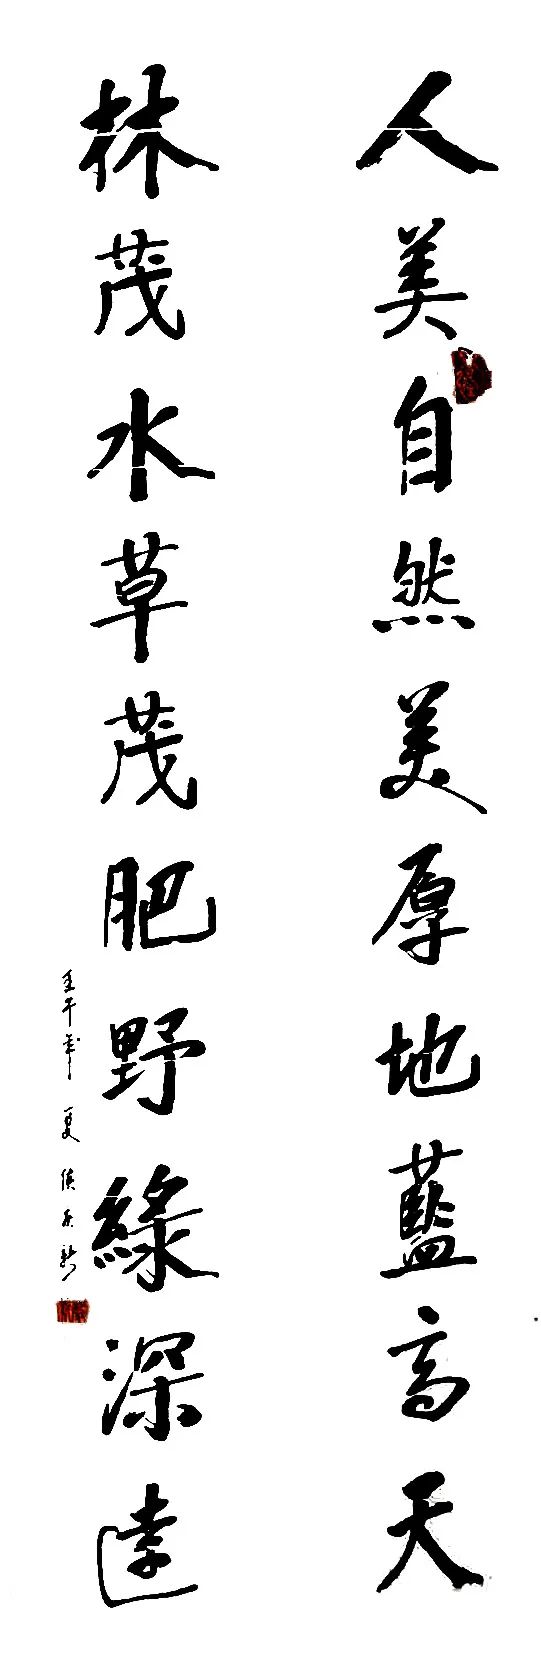 人美自然美厚地藍高天
林茂水草茂肥野綠深遠
壬午年夏